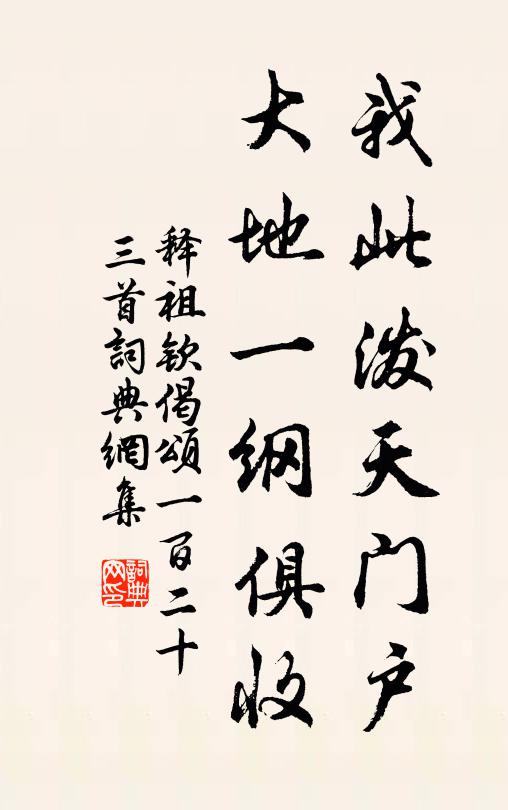 我此泼天门户
大地一纲俱收
释祖钦偈颂一百二十
三首詞典網集
詞典网印